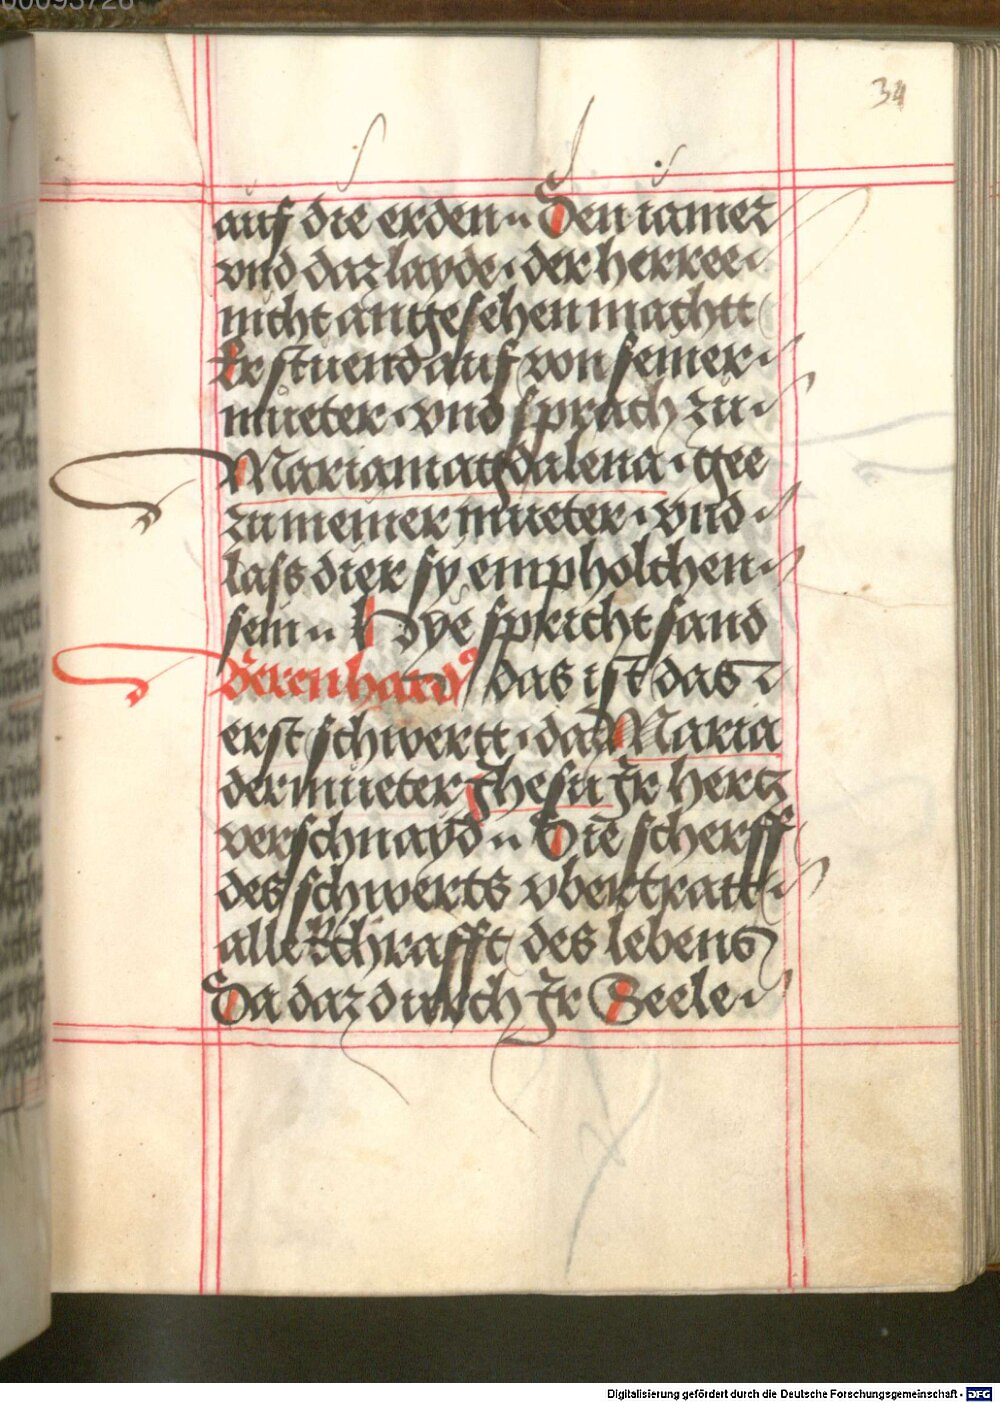 00093726
34
auf die erden ·· Den iamer
vnd daz layde · der herree ·
nicht angesehen machtt
Er stuend auf von seiner ·
mueter · vnd sprach zu ·
Mariamagdalena · gee
zu meiner mueter · vnd ·
lass dier sy empholchen ·
sein ·· Hye spricht sand
Berenhardꝰ das ist das
erst schwertt · das Maria
der mueter Jhesu Jr hertz
verschnayd ·· Die scherff
des schwerts vbertratt ·
alle Kchrafft des lebens
Da daz durch Jr Seele ·
Digitalisierung gefördert durch die Deutsche Forschungsgemeinschaft - DFG